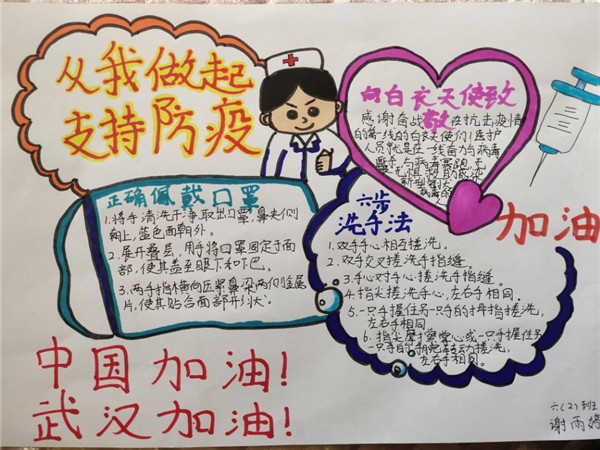 从我做起
支持防疫
向白衣天使致
敬
感谢奋战在抗击疫情
的第一线的白衣天使们!医护
人员就是在一线奋力与病毒
加油
正确佩戴口罩
1.将手清洗干净,取出口罩,鼻夹侧
朝上,蓝色面朝外。
2.展开叠层,用手将口罩固定于面
部,使其盖至眼下和下巴。
3.两手指横向压紧鼻梁两侧金属
片,使其贴合面部形状。
六步
洗手法
1.双手手心相互搓洗。
2.双手交叉搓洗手指缝。
3.手心对手心搓洗手指缝。
4.指尖搓洗手心,左右手相同。
5.一只手握住另一只手的拇指搓洗,
左右手相同。
6.指尖摩擦掌心或一只手握住另
左右手相同。
中国加油!
武汉加油!
六(2)班
谢雨婷